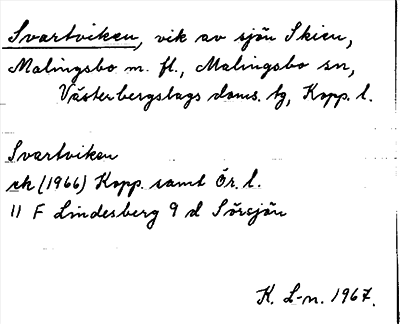 Svartviken, vik av sjön Skien,
Malingsbo m. fl., Malingsbo sn,
Västerbergslags doms. tg, Kopp. l.
Svartviken
ek (1966) Kopp. samt Ör. l.
11 F Lindesberg 9 d Sörsjön
K. L-n. 1967.